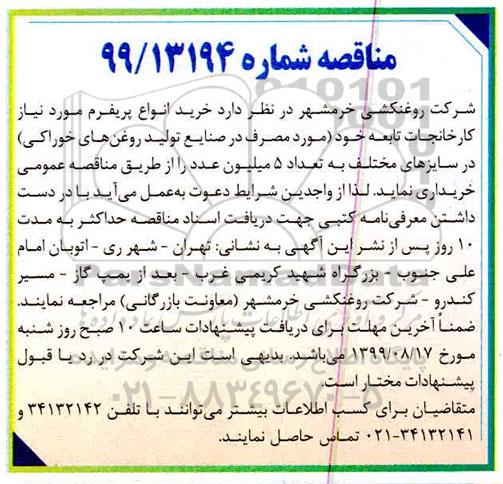 مناقصه شماره ۹۹/۱۳۱۹۴
شرکت روغنکشی خرمشهر در نظر دارد خرید انواع پریفرم مورد نیاز
کارخانجات تابعه خود (مورد مصرف در صنایع تولید روغن‌های خوراکی)
در سایزهای مختلف به تعداد ۵ میلیون عدد را از طریق مناقصه عمومی
خریداری نماید. لذا از واجدین شرایط دعوت به‌عمل می‌آید با در دست
داشتن معرفی‌نامه کتبی جهت دریافت اسناد مناقصه حداکثر به مدت
۱۰ روز پس از نشر این آگهی به نشانی: تهران - شهر ری - اتوبان امام
علی جنوب - بزرگراه شهید کریمی غرب - بعد از پمپ گاز - مسیر
کندرو - شرکت روغنکشی خرمشهر (معاونت بازرگانی) مراجعه نمایند.
ضمناً آخرین مهلت برای دریافت پیشنهادات ساعت ۱۰ صبح روز شنبه
مورخ ۱۳۹۹/۰۸/۱۷ می‌باشد. بدیهی است این شرکت در رد یا قبول
پیشنهادات مختار است.
۰۲۱-۸۸۳۴۹۶۷۰-۵
متقاضیان برای کسب اطلاعات بیشتر می‌توانند با تلفن ۳۴۱۳۲۱۴۲ و
۰۲۱-۳۴۱۳۲۱۴۱ تماس حاصل نمایند.